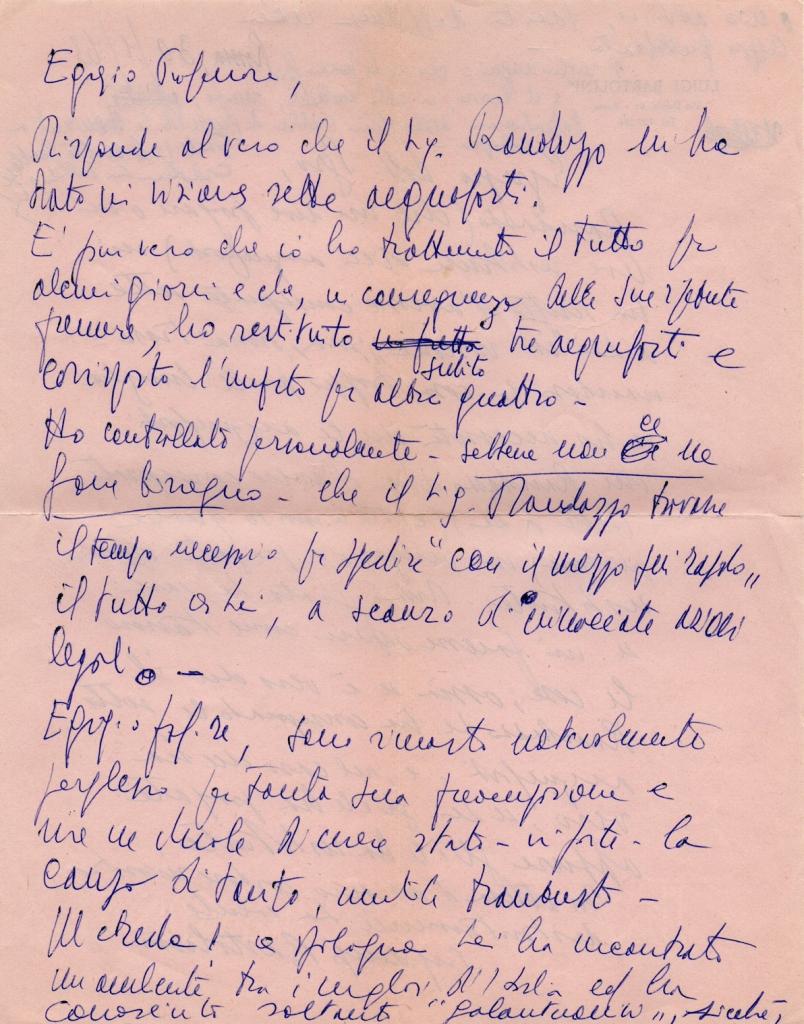 Egregio Professore,
Risponde al vero che il Sig. Randazzo mi ha
dato in visione sette acqueforti.
E' pur vero che io ho trattenuto il tutto per
alcuni giorni e che, in conseguenza delle Sue ripetute
premure, ho restituito in fretta subito tre acqueforti e
corrisposto l'importo per altre quattro -
Ho controllato personalmente - sebbene non ce ne
fosse bisogno - che il Sig. Randazzo trovasse
il tempo necessario per spedire "con il mezzo più rapido"
il tutto a Lei, a scanso di minacciate azioni
legali. -
Egregio prof.re, sono rimasto notevolmente
perplesso per tanta Sua e
me ne duole di essere stato - in parte - la
causa di tanto, inutile trambusto -
Mi creda! a Bologna Lei ha incontrato
un ambiente tra i migliori d'Italia ed ha
conosciuto soltanto "galantuomini", sicché,
LUIGI BARTOLINI